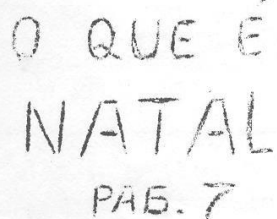 O QUE É
NATAL
PAG. 7